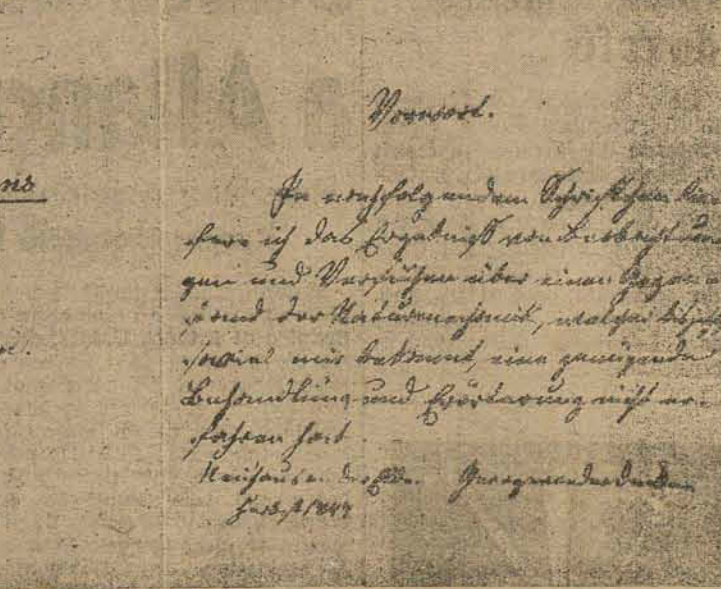 Vorwort.
nis
In nachfolgendem Schriftchen lie
fere ich das Ergebniß von Beobachtun
gen und Versuchen über einen Gegen
stand der Naturmechanik, welcher bisher
soviel mir bekannt, eine genügende
Behandlung und Erörterung nicht er-
fahren hat.
Neuhaus an der
Herbst